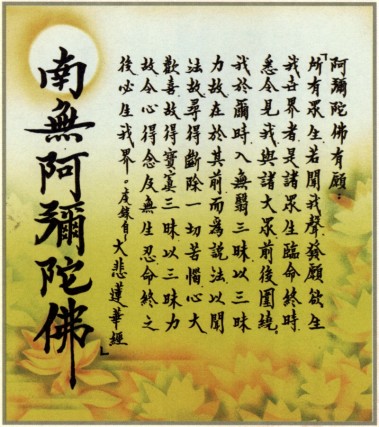 阿彌陀佛有願：
「所有眾生若聞我聲發願欲生
我世界者是諸眾生臨命終時
悉令見我與諸大眾前後圍繞
我於爾時入無翳三昧以三昧
力故在於其前而為説法以聞
法故尋得斷除一切苦惱心大
歡喜故得寶寘三昧以三昧力
故令心得念及無生忍命終之
後必生我界 錄自大悲蓮華經」
南無阿彌陀佛